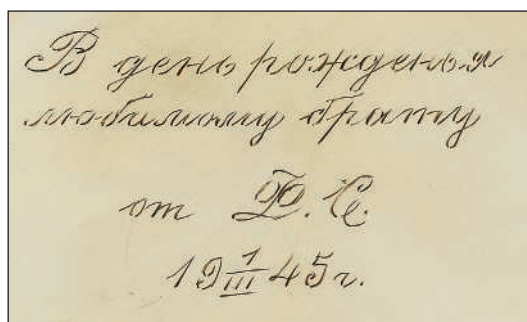 В день рожденья
любимому брату
от Ф. С.
19 1/III 45 г.